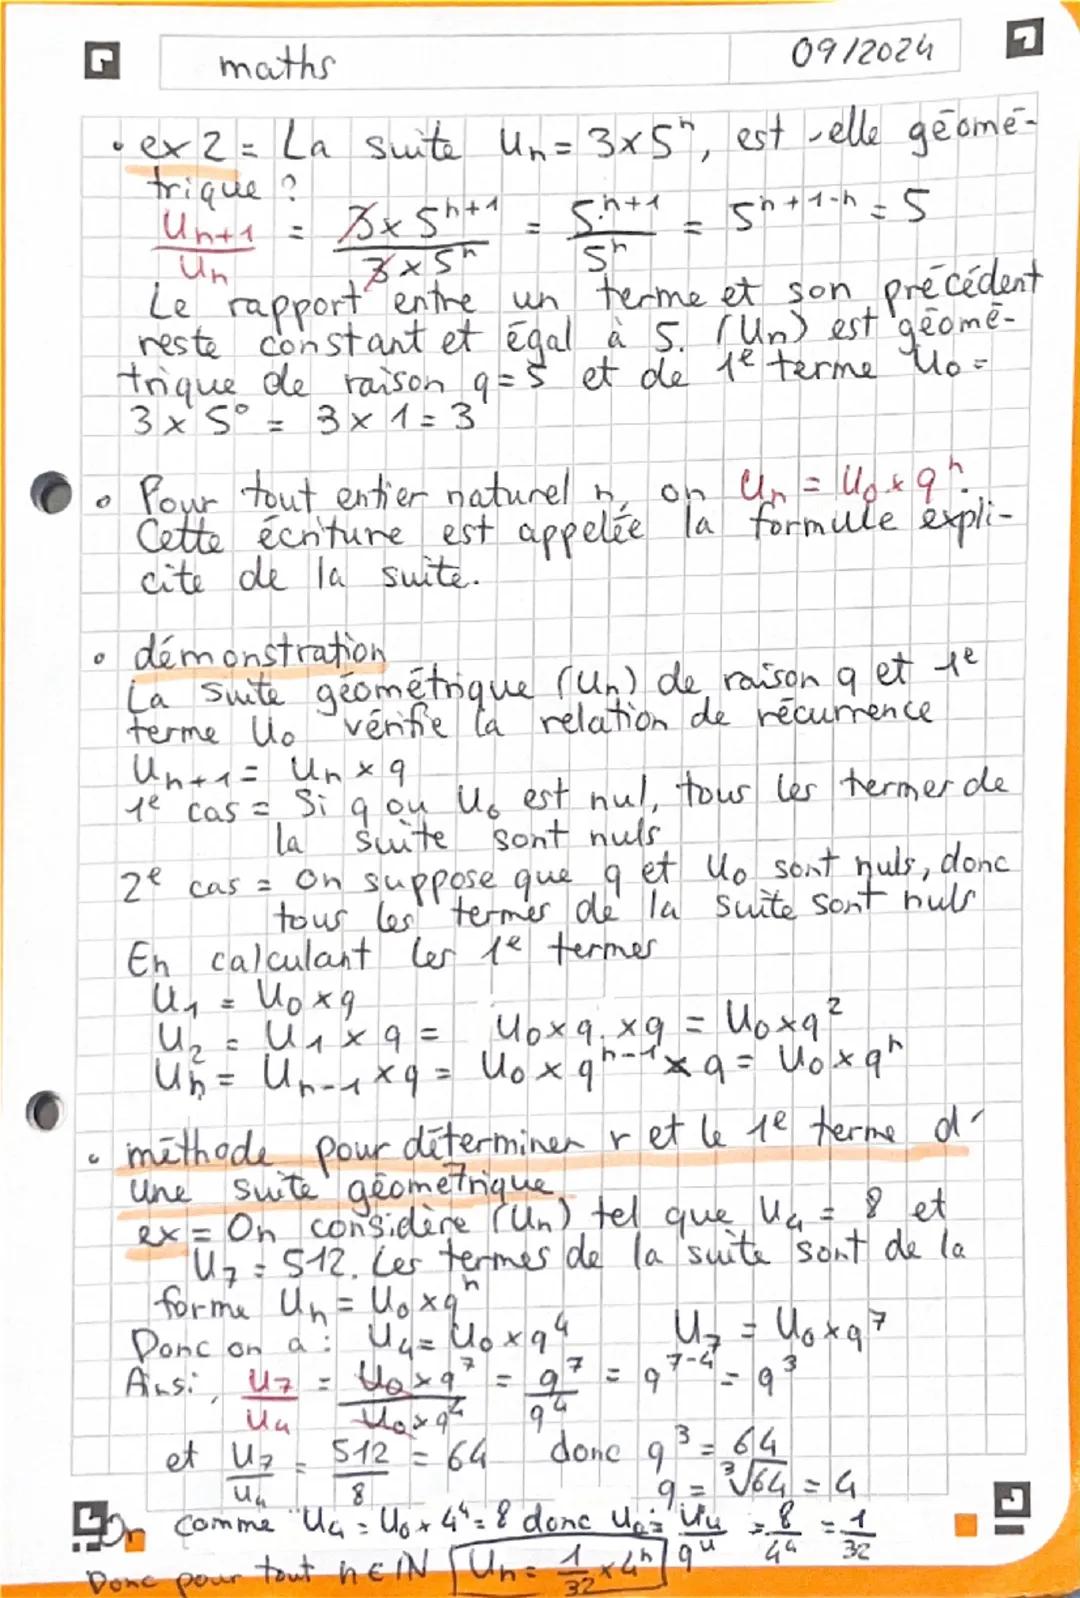 maths
09/2024
• ex 2 = La suite Un = 3x5ⁿ, est-elle géomé-
trique ?
Un+1/Un = 3x5ⁿ⁺¹/3x5ⁿ = 5ⁿ⁺¹/5ⁿ = 5ⁿ⁺¹⁻ⁿ = 5
Le rapport entre un terme et son précédent
reste constant et égal à 5. (Un) est géomé-
trique de raison q=5 et de 1e terme U₀ =
3 x 5⁰ = 3 x 1 = 3
• Pour tout entier naturel n, on Un = U₀ x qⁿ.
Cette écriture est appelée la formule expli-
cite de la suite.
• démonstration
La suite géométrique (Un) de raison q et 1e
terme U₀ vérifie la relation de récurrence
Un+1 = Un x q
1e cas = Si q ou U₀ est nul, tous les termes de
la suite sont nuls
2e cas = On suppose que q et U₀ sont nuls, donc
tous les termes de la suite sont nuls
En calculant les 1e termes
U₁ = U₀ x q
U₂ = U₁ x q = U₀ x q x q = U₀ x q²
Un = Un-1 x q = U₀ x qⁿ⁻¹ x q = U₀ x qⁿ
• méthode pour déterminer r et le 1e terme d'
une suite géométrique
ex = On considère (Un) tel que U₄ = 8 et
U₇ = 512. Les termes de la suite sont de la
forme Un = U₀ x qⁿ
Donc on a : U₄ = U₀ x q⁴ U₇ = U₀ x q⁷
Ainsi, U₇/U₄ = U₀ x q⁷/U₀ x q⁴ = q⁷/q⁴ = q⁷⁻⁴ = q³
et U₇/U₄ = 512/8 = 64 donc q³ = 64
q = ³√64 = 4
On comme U₄ = U₀ x 4⁴ = 8 donc U₀ = U₄/q⁴ = 8/4⁴ = 1/32
Donc pour tout n ∈ IN Un = 1/32 x 4ⁿ